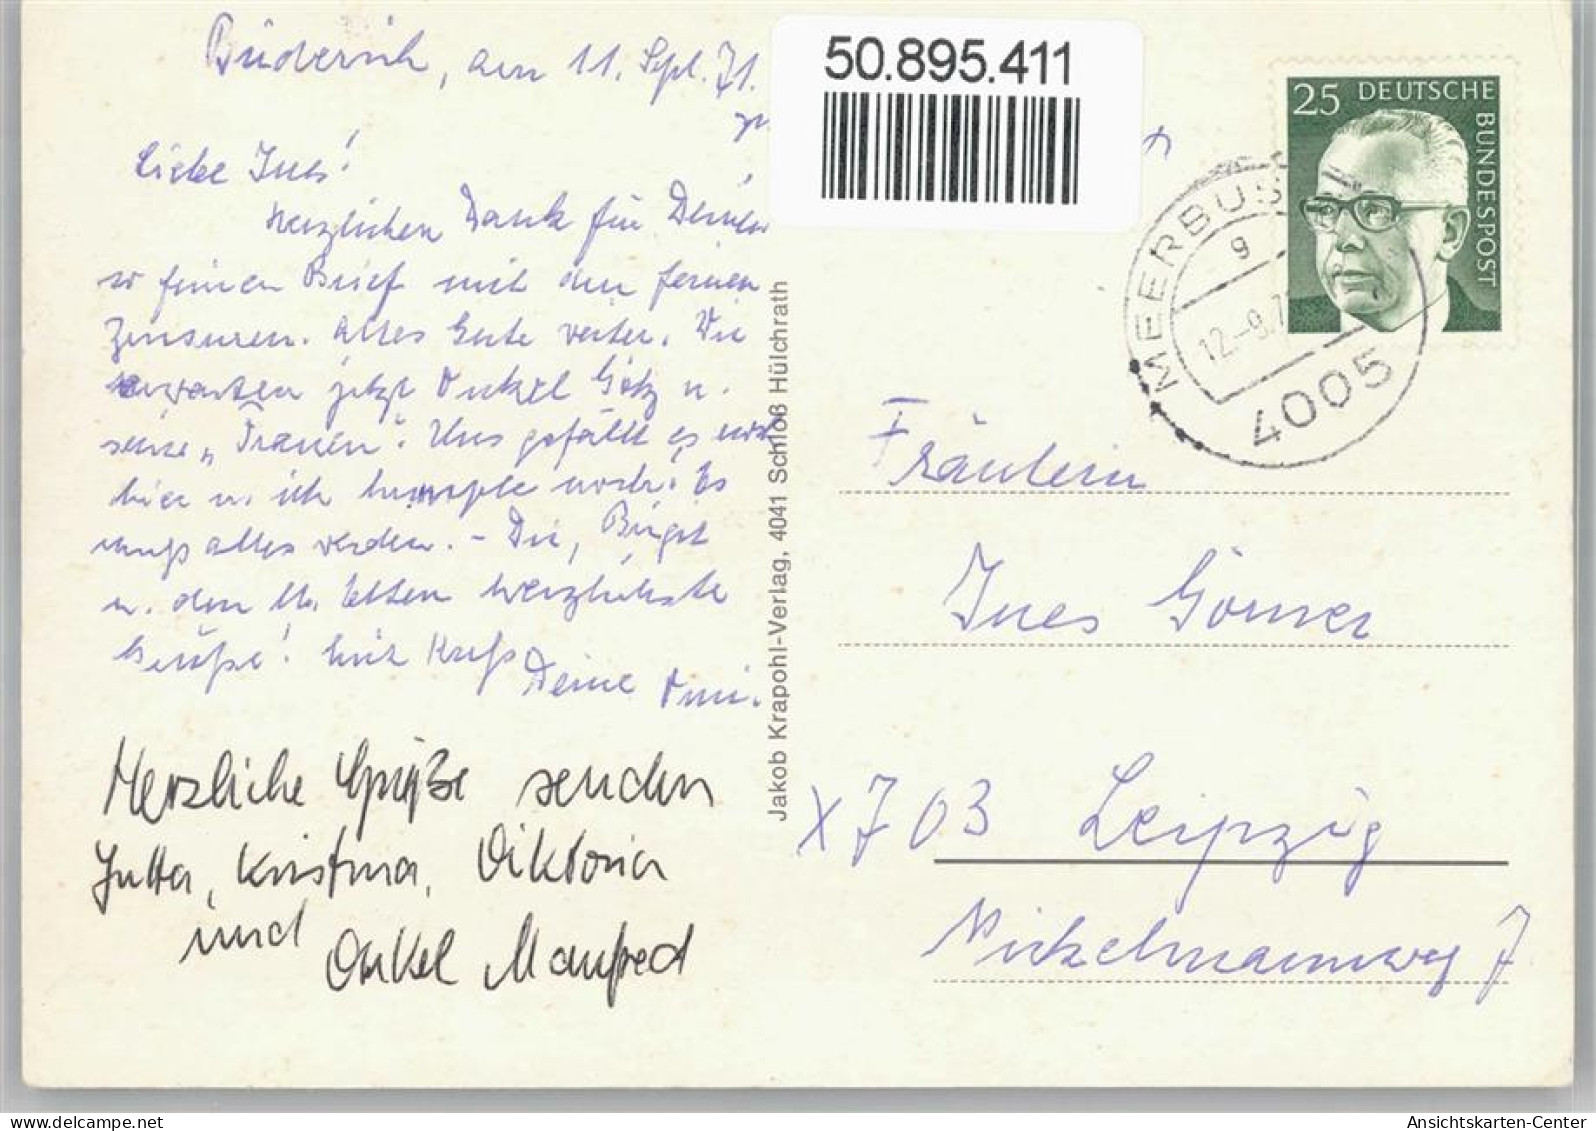 Büderich, am 11. Sept. 71.
Liebe Ines!
Herzlichen Dank für Deinen
so feinen Brief mit den feinen
Zensuren. Alles Gute weiter. Wir
erwarten jetzt Onkel Götz u.
seine „Frauen". Uns gefällt es
hier u. ich humple noch. Es
muß alles werden. – Dir, Birgit
u. den lb. Eltern herzlichste
Grüße! Mit Kuß
Deine Omi.
Herzliche Grüße senden
Jutta, Kristina, Viktoria
und
Onkel Manfred
Jakob Krapohl-Verlag, 4041 Schloß Hülchrath
50.895.411
25 DEUTSCHE
BUNDESPOST
MEERBUS
g
12.-9.7
4005
Fräulein
Ines Görner
X 703 Leipzig
7
delcampe.net
jlmradio
Ansichtskarten-Center